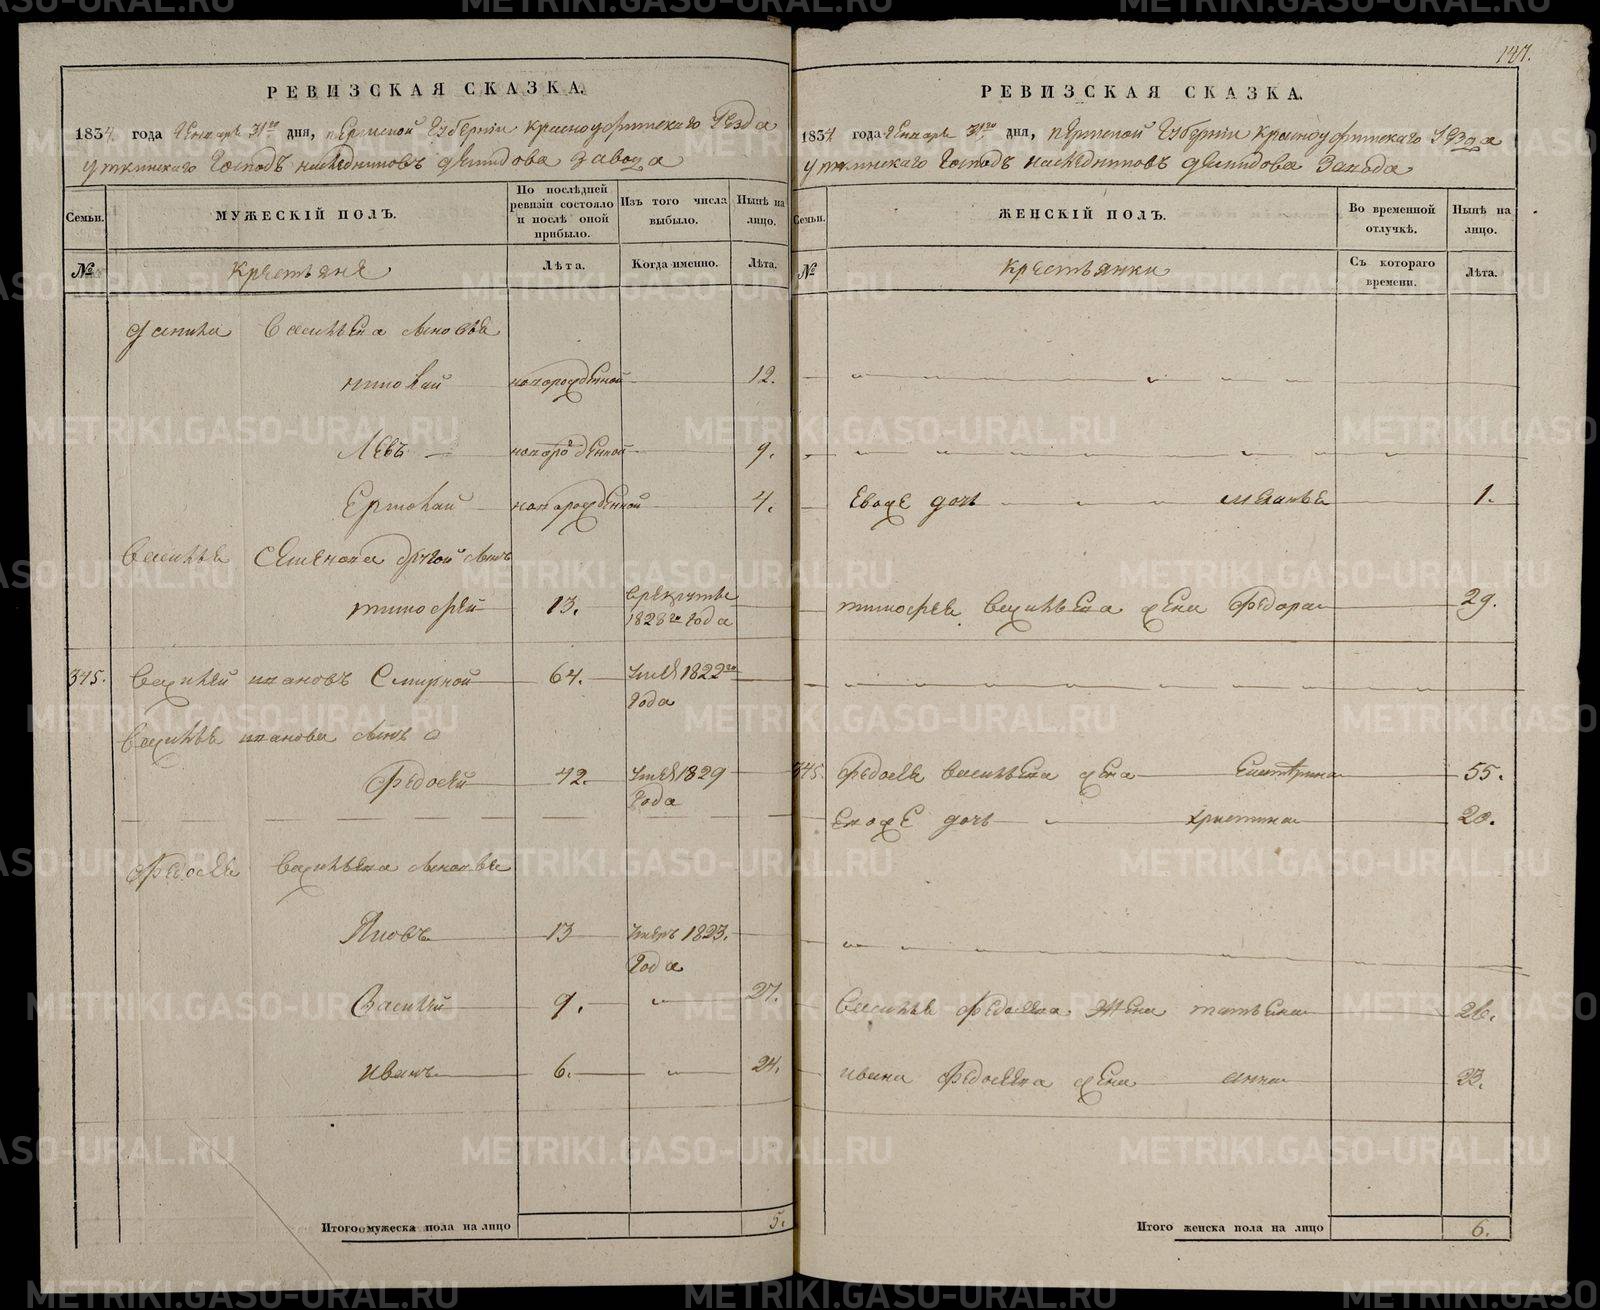 147.
РЕВИЗСКАЯ СКАЗКА.
1834 года Января 31го дня, Пермской Губернии Красноуфимского Уезда
Уткинского Господъ наследниковъ Демидова завода
Семьи.
МУЖЕСКІЙ ПОЛЪ.
По послѣдней ревизіи состояло и послѣ оной прибыло.
Изъ того числа выбыло.
Нынѣ на лицо.
№
Крестьяне
Лѣта.
Когда именно.
Лѣта.
Данила Васильева сыновья
новорожденной 12.
Левъ новорожденной 9.
Ермолай новорожденной 4.
Василья Семенова другой сынъ
Тимофей 13. в рекруты 1828го года
345. Василей Ивановъ Смирной 64. Умеръ 1822го года
Василья Иванова сынъ
Федосей 42. Умеръ 1829 года
Федосея Васильева сыновья
Яковъ 13 Умеръ 1823. года
Василей 9. " 27.
Иванъ 6. " 24.
Итого мужеска пола на лицо 5.
РЕВИЗСКАЯ СКАЗКА.
1834 года Января 31го дня, Пермской Губернии Красноуфимского Уезда
Уткинского Господъ наследниковъ Демидова Завода
Семьи.
ЖЕНСКІЙ ПОЛЪ.
Во временной отлучкѣ.
Нынѣ на лицо.
№
Крестьянки
Съ котораго времени.
Лѣта.
Евоже дочь Меланья 1.
Тимофея Васильева жена Федора 29.
345. Федосея Васильева жена Екатерина 55.
Евоже дочь Христина 20.
Василья Федосеева жена Татьяна 26.
Ивана Федосеева жена Анна 23.
Итого женска пола на лицо 6.
METRIKI.GASO-URAL.RU